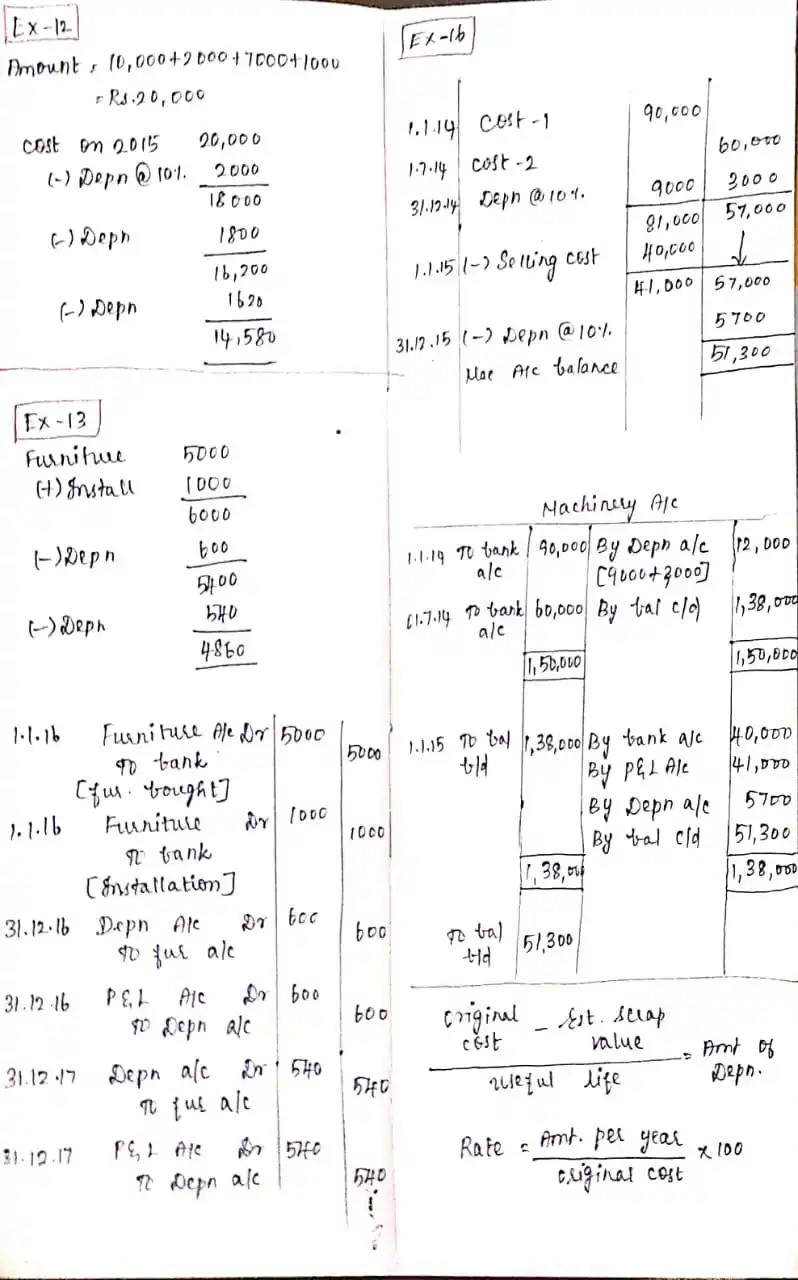 Ex-12
Amount = 10,000+2000+7000+1000
= Rs.20,000
Cost on 2015 20,000
(-) Depn @ 10%. 2000
18000
(-) Depn 1800
16,200
(-) Depn 1620
14,580
Ex-13
Furniture 5000
(+) Install 1000
6000
(-) Depn 600
5400
(-) Depn 540
4860
1.1.16 Furniture A/c Dr 5000
To bank 5000
[fur. bought]
1.1.16 Furniture Dr 1000
To bank 1000
[Installation]
31.12.16 Depn A/c Dr 600
To fur a/c 600
31.12.16 P&L A/c Dr 600
To Depn a/c 600
31.12.17 Depn a/c Dr 540
To fur a/c 540
31.12.17 P&L A/c Dr 540
To Depn a/c 540
Ex-16
1.1.14 Cost-1 90,000
1.7.14 Cost-2 60,000
31.12.14 Depn @ 10%. 9000 3000
81,000 57,000
1.1.15 (-) Selling cost 40,000 ↓
41,000 57,000
31.12.15 (-) Depn @ 10%. 5700
Mac A/c balance 51,300
Machinery A/c
1.1.14 To bank 90,000 By Depn a/c 12,000
a/c [9000+3000]
1.7.14 To bank 60,000 By bal c/d 1,38,000
a/c
1,50,000 1,50,000
1.1.15 To bal 1,38,000 By bank a/c 40,000
b/d By P&L A/c 41,000
By Depn a/c 5700
By bal c/d 51,300
1,38,000 1,38,000
To bal 51,300
b/d
Original cost - Est. scrap value
useful life = Amt of Depn.
Rate = Amt. per year × 100
original cost